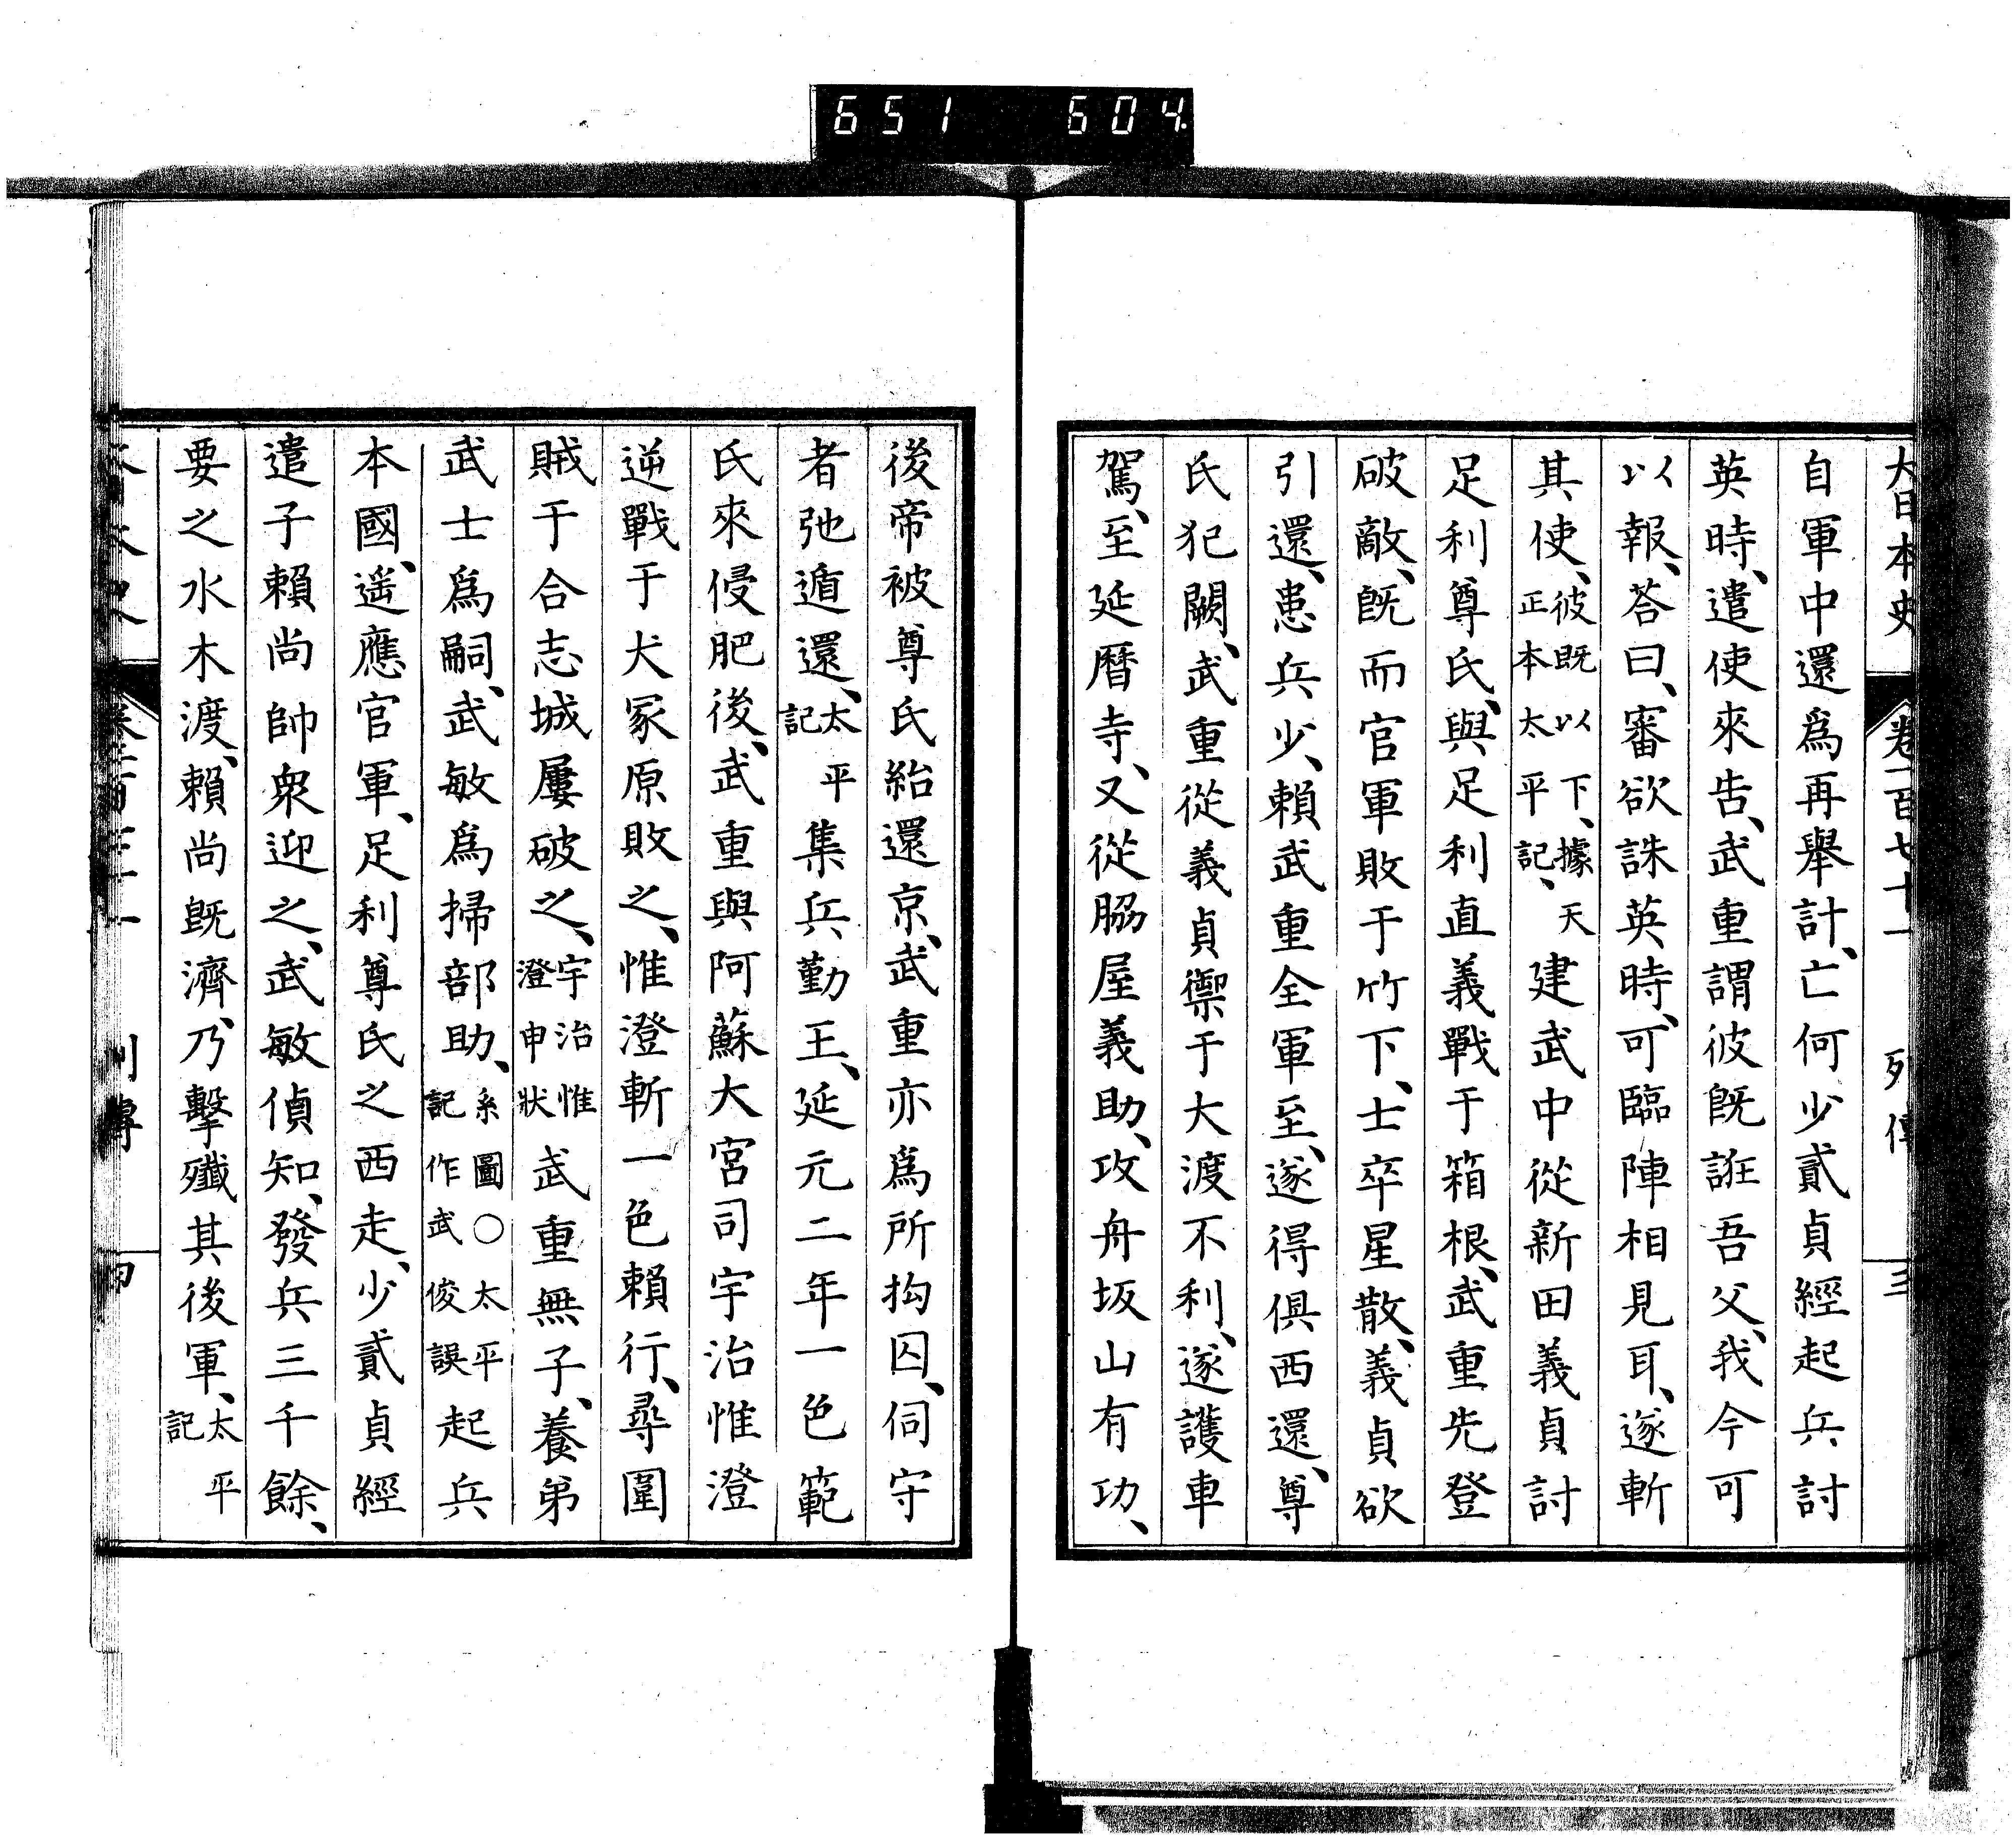 651 604
大日本史 卷一百七十一 列傳 三
自軍中還爲再舉計、亡何少貳貞經起兵討
英時、遣使來告、武重謂彼既誑吾父、我今可
以報、荅曰、審欲誅英時、可臨陣相見耳、遂斬
其使、彼既以下、據天正本太平記、建武中從新田義貞討
足利尊氏、與足利直義戰于箱根、武重先登
破敵、既而官軍敗于竹下、士卒星散、義貞欲
引還、患兵少、賴武重全軍至、遂得俱西還、尊
氏犯闕、武重從義貞禦于大渡不利、遂護車
駕、至延曆寺、又從脇屋義助、攻舟坂山有功、
後帝被尊氏紿還京、武重亦爲所拘囚、伺守
者弛遁還、太平記集兵勤王、延元二年一色範
氏來侵肥後、武重與阿蘇大宮司宇治惟澄
逆戰于犬冢原敗之、惟澄斬一色賴行、尋圍
賊于合志城屢破之、宇治惟澄申狀武重無子、養弟
武士爲嗣、武敏爲掃部助、系圖○太平記作武俊誤起兵
本國、遥應官軍、足利尊氏之西走、少貳貞經
遣子賴尚帥衆迎之、武敏偵知、發兵三千餘、
要之水木渡、賴尚既濟、乃擊殲其後軍、太平記
列傳 四